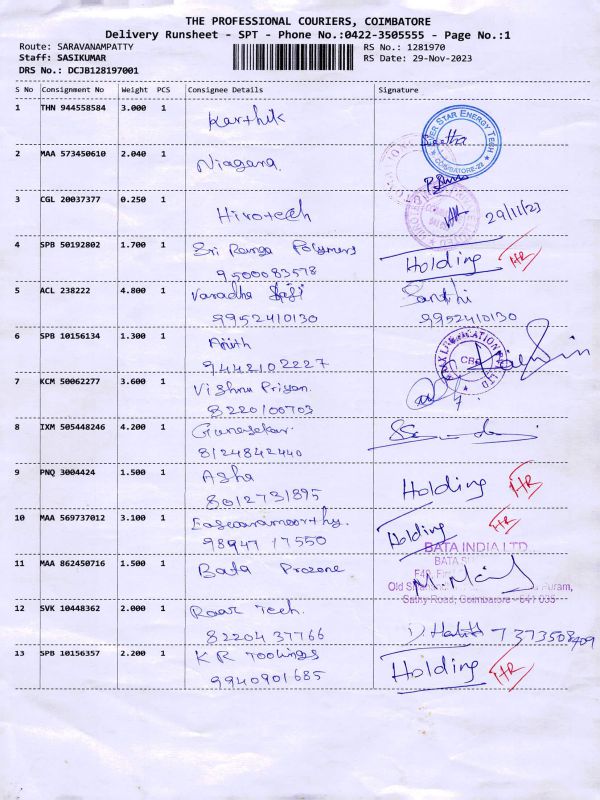 THE PROFESSIONAL COURIERS, COIMBATORE
Delivery Runsheet - SPT - Phone No.:0422-3505555 - Page No.:1
Route: SARAVANAMPATTY RS No.: 1281970
Staff: SASIKUMAR RS Date: 29-Nov-2023
DRS No.: DCJB128197001
S No Consignment No Weight PCS Consignee Details Signature
1 THN 944558584 3.000 1 Karthik
STAR ENERGY TECH
COIMBATORE-22
2 MAA 573450610 2.040 1 Niagara
3 CGL 20037377 0.250 1 Hirotech 29/11/23
4 SPB 50192802 1.700 1 Sri Ranga Polymers Holding HR
9500083578
5 ACL 238222 4.800 1 Varadha Santhi
9952410130 9952410130
6 SPB 10156134 1.300 1
9442102227
7 KCM 50062277 3.600 1 Vishnu Priyan.
8220100703
8 IXM 505448246 4.200 1 Gunasekar.
8124842440
9 PNQ 3004424 1.500 1 Asha Holding HR
8012731895
10 MAA 569737012 3.100 1 Easwaramoorthy. Holding HR
98947 17550
BATA INDIA LTD
11 MAA 862450716 1.500 1 Bata Prozone M.
Sathy Road, Coimbatore - 641 035
12 SVK 10448362 2.000 1 Roar Tech. 7373508409
82204 37766
13 SPB 10156357 2.200 1 K R Toolings Holding HR
9940901685